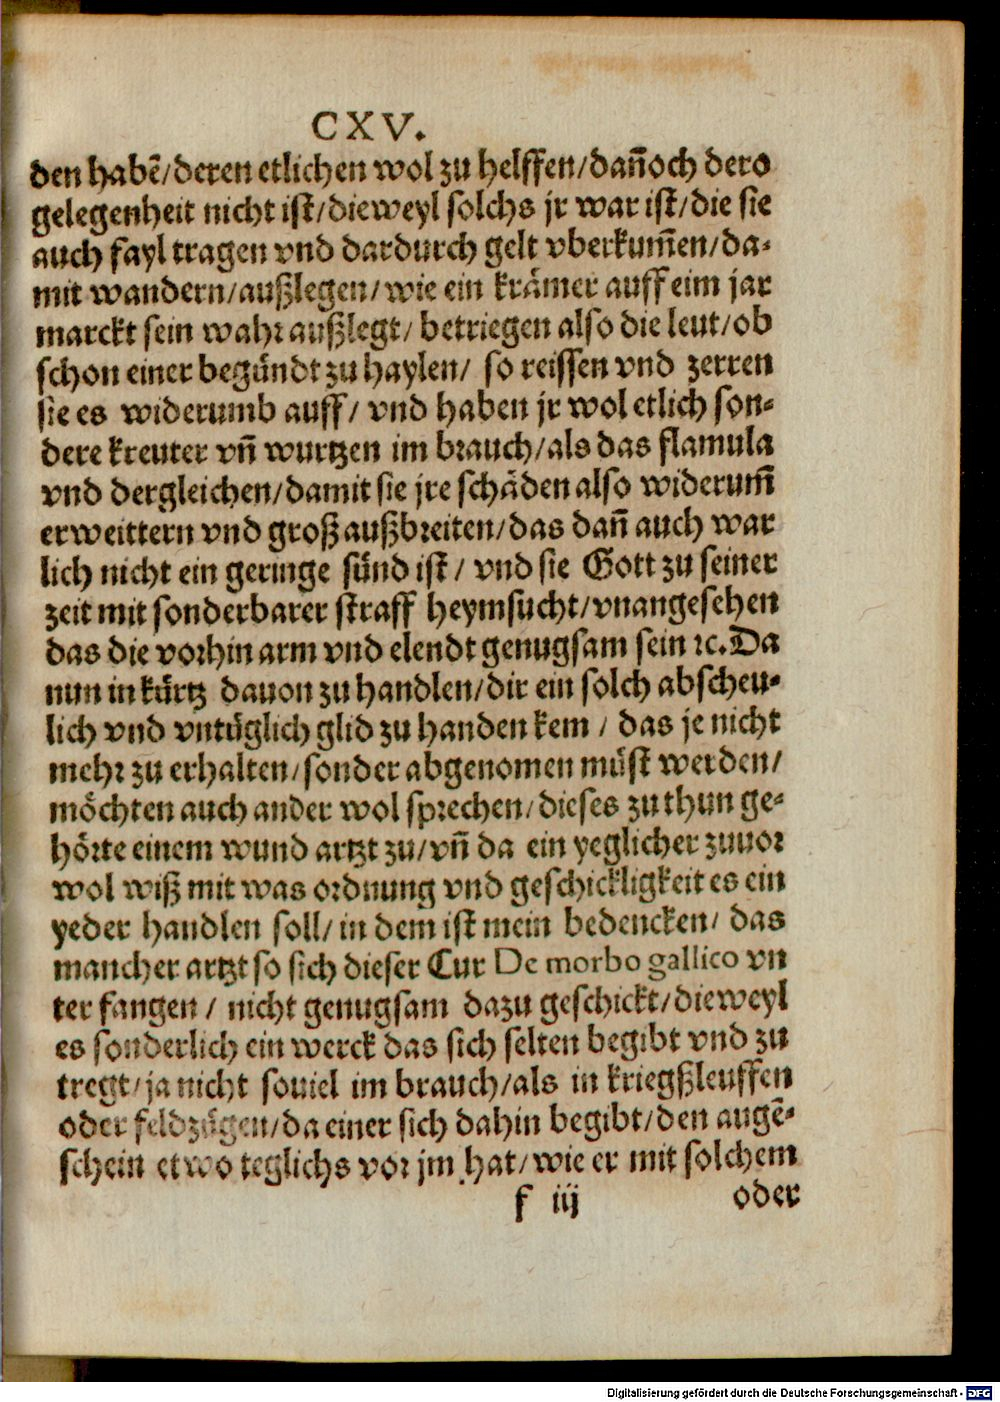 CXV.
den habē/deren etlichen wol zu helffen/dañoch dero
gelegenheit nicht ist/dieweyl solchs jr war ist/die sie
auch fayl tragen vnd dardurch gelt vberkum̃en/da-
mit wandern/außlegen/wie ein krämer auff eim jar
marckt sein wahr außlegt/ betriegen also die leut/ob
schon einer begündt zu haylen/ so reissen vnd zerren
sie es widerumb auff/ vnd haben jr wol etlich son-
dere kreuter vñ wurtzen im brauch/als das flamula
vnd dergleichen/damit sie jre schäden also widerum̃
erweittern vnd groß außbreiten/das dañ auch war
lich nicht ein geringe sünd ist/ vnd sie Gott zu seiner
zeit mit sonderbarer straff heymsucht/vnangesehen
das die vorhin arm vnd elendt genugsam sein ꝛc. Da
nun in kürtz dauon zu handlen/dir ein solch abscheu-
lich vnd vntüglich glid zu handen kem/ das je nicht
mehr zu erhalten/sonder abgenomen müst werden/
möchten auch ander wol sprechen/dieses zu thun ge-
hörte einem wund artzt zu/vñ da ein yeglicher zuuor
wol wiß mit was ordnung vnd geschickligkeit es ein
yeder handlen soll/in dem ist mein bedencken/ das
mancher artzt so sich dieser Cur De morbo gallico vn
ter fangen/ nicht genugsam dazu geschickt/dieweyl
es sonderlich ein werck das sich selten begibt vnd zu
tregt/ja nicht souiel im brauch/als in kriegßleuffen
oder feldzügen/da einer sich dahin begibt/den augē-
schein etwo teglichs vor jm hat/wie er mit solchem
f iij oder
Digitalisierung gefördert durch die Deutsche Forschungsgemeinschaft - DFG